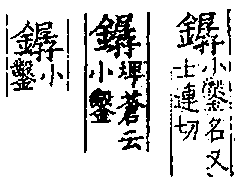 小鑿名又
士連切
埤蒼云
小鑿
小
鑿